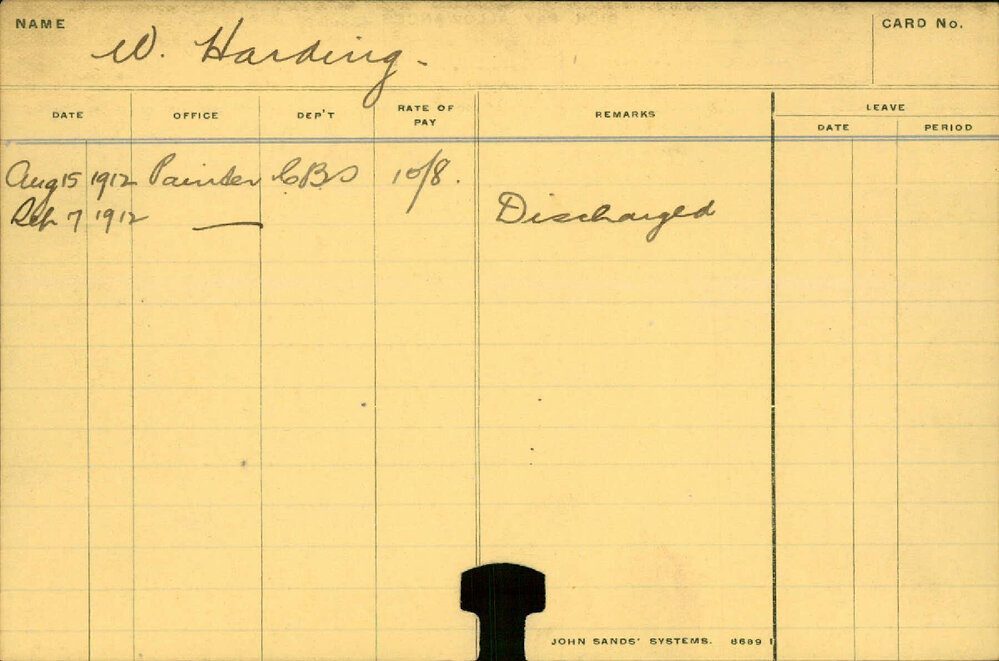 NAME W. Harding. CARD No.
DATE OFFICE DEP'T RATE OF PAY REMARKS LEAVE
DATE PERIOD
Aug 15 1912 Painter CBS 10/8.
Sep 7 1912 — Discharged
JOHN SANDS' SYSTEMS. 8689